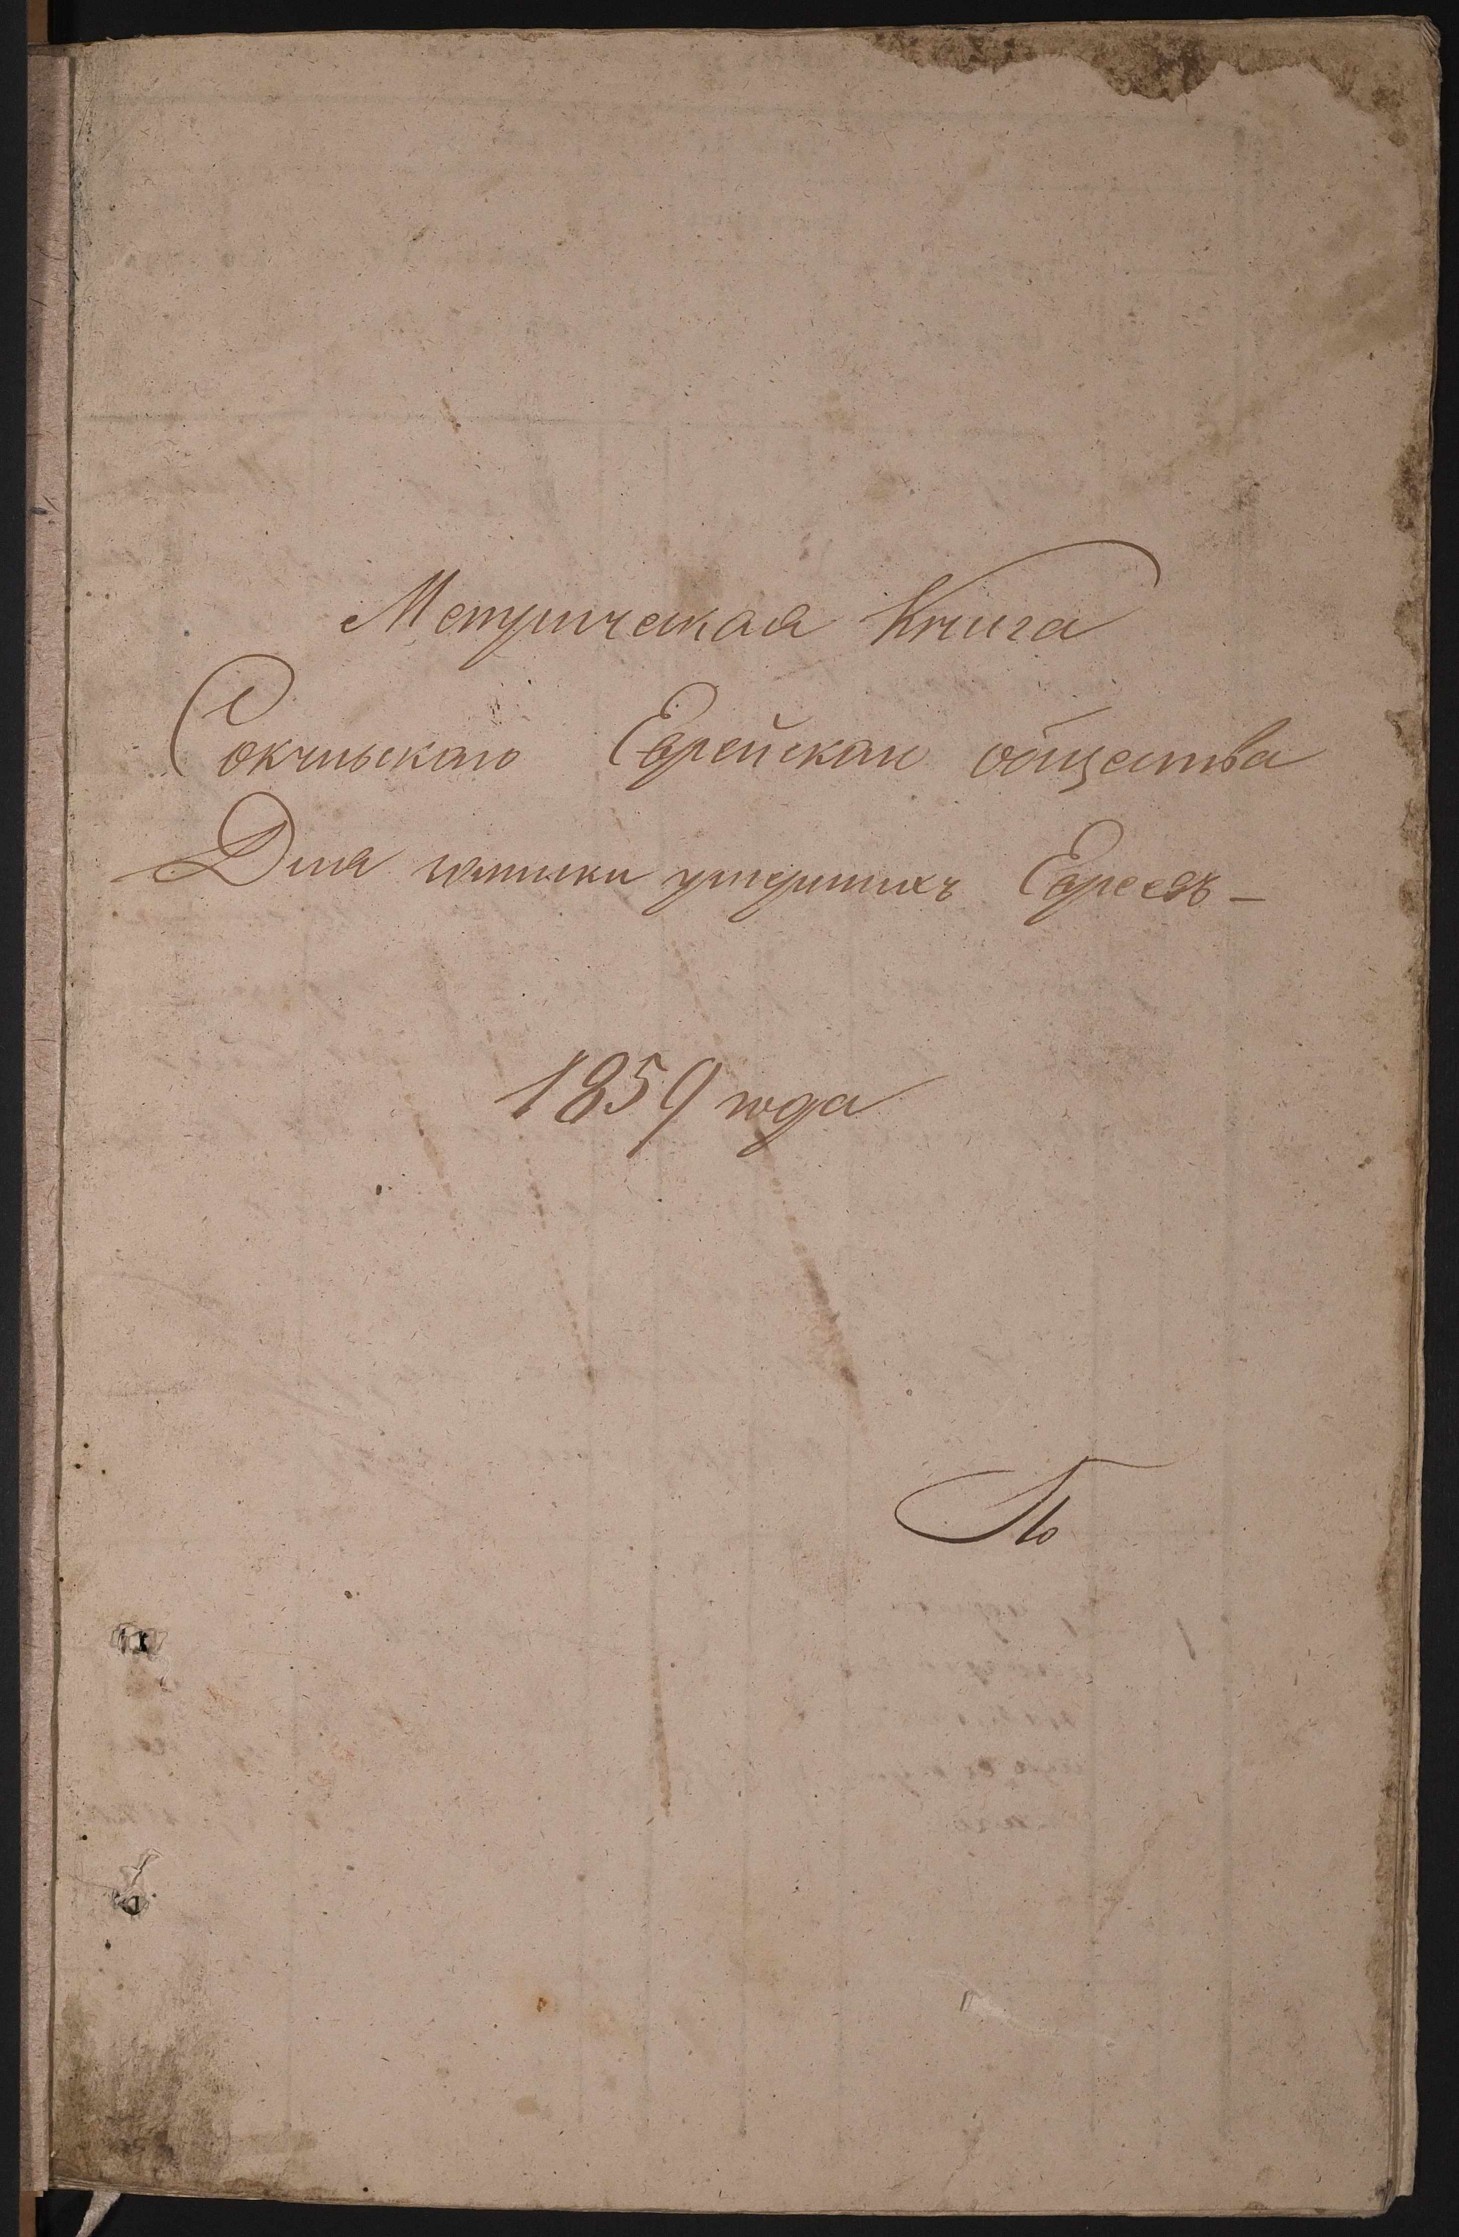 Метрическая Книга
Еврейскаго общества
Для записки умершихъ Евреевъ –
1859 года
По